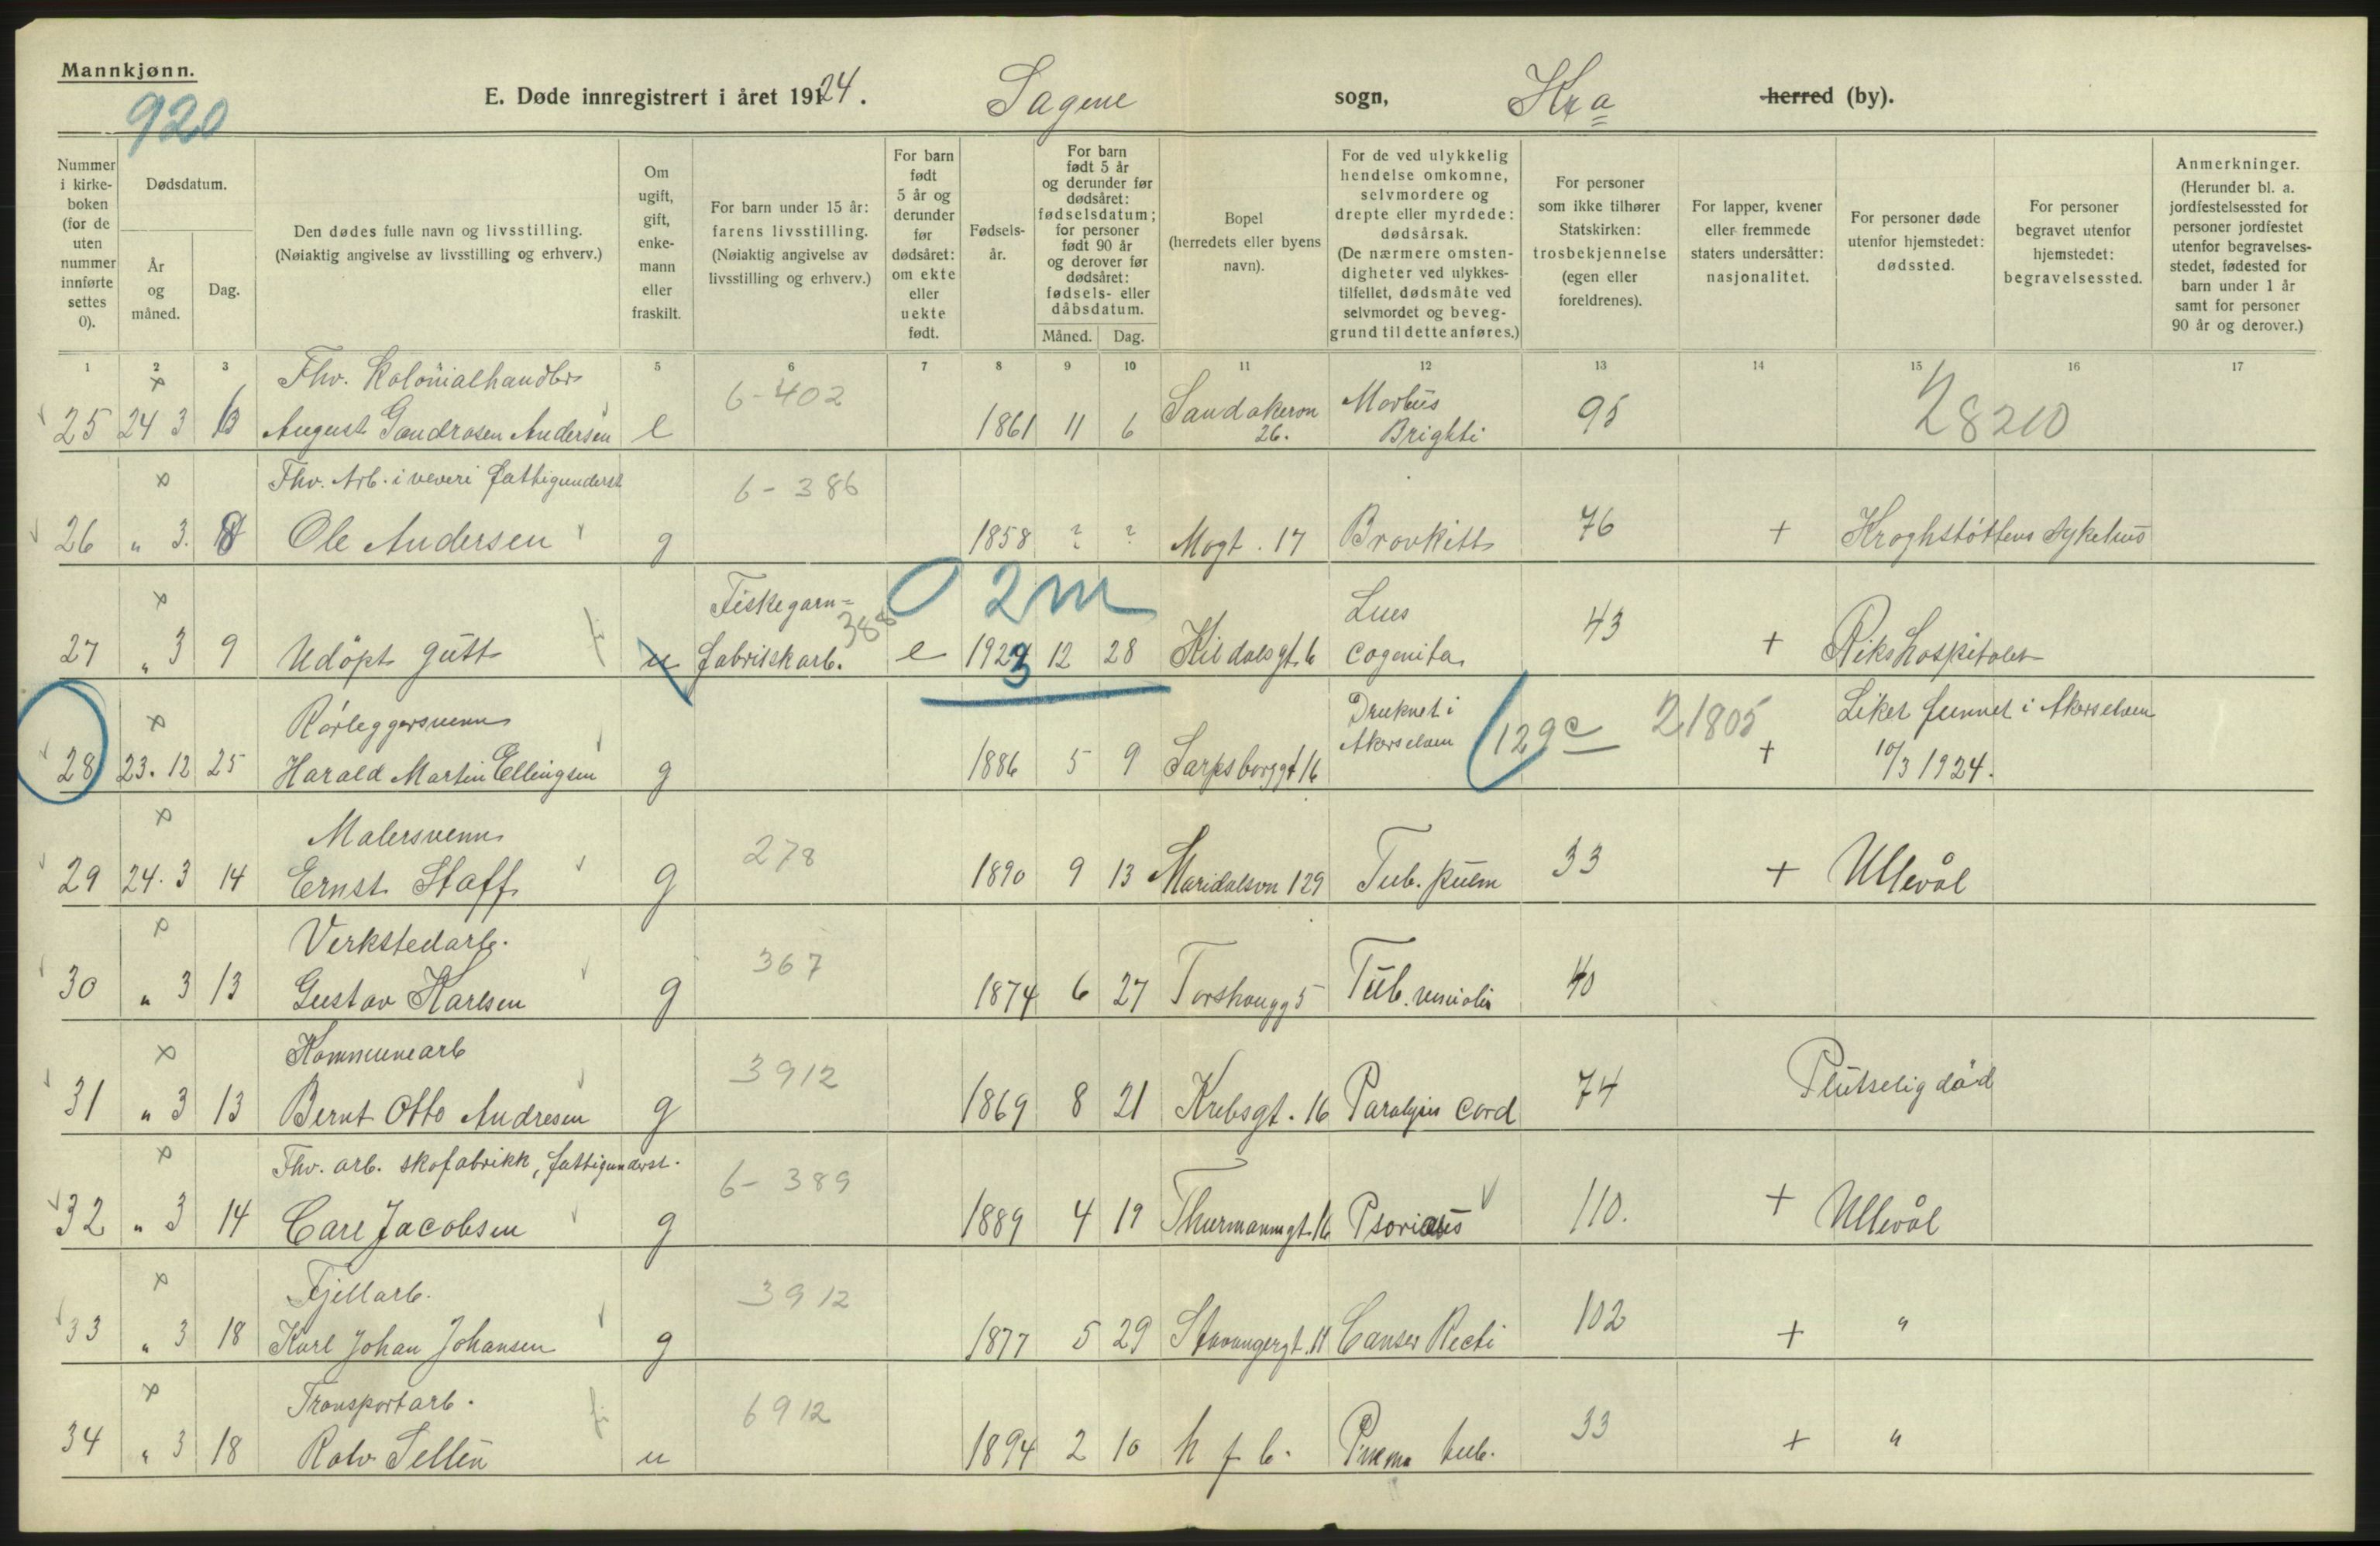 Mannkjønn.
920
E. Døde innregistrert i året 19124. Sagene sogn, Kra herred (by).
Nummer i kirke- boken (for de uten nummer innførte settes 0).
Dødsdatum.
År og måned.
Dag.
Den dødes fulle navn og livsstilling.
(Nøiaktig angivelse av livsstilling og erhverv.)
Om ugift, gift, enke- mann eller fraskilt.
For barn under 15 år: farens livsstilling.
(Nøiaktig angivelse av livsstilling og erhverv.)
For barn født 5 år og derunder før dødsåret: om ekte eller uekte født.
Fødsels- år.
For barn født 5 år og derunder før dødsåret: fødselsdatum; for personer født 90 år og derover før dødsåret: fødsels- eller dåbsdatum.
Måned. Dag.
Bopel (herredets eller byens navn).
For de ved ulykkelig hendelse omkomne, selvmordere og drepte eller myrdede: dødsårsak.
(De nærmere omsten- digheter ved ulykkes- tilfellet, dødsmåte ved selvmordet og beveg- grund til dette anføres.)
For personer som ikke tilhører Statskirken: trosbekjennelse (egen eller foreldrenes).
For lapper, kvener eller fremmede staters undersåtter: nasjonalitet.
For personer døde utenfor hjemstedet: dødssted.
For personer begravet utenfor hjemstedet: begravelsessted.
Anmerkninger.
(Herunder bl. a. jordfestelsessted for personer jordfestet utenfor begravelses- stedet, fødested for barn under 1 år samt for personer 90 år og derover.)
1 2 3 5 6 7 8 9 10 11 12 13 14 15 16 17
x Fhv. Kolonialhandler 6-402 Morbus 95 28210
25 24 3 13 August Gandrosen Andersen e 1861 11 6 Sandakervn 26. Brighti
x Fhv. Arb. i veveri fattigunderst 6-386
26 " 3. 8 Ole Andersen g 1858 ? ? Mogt. 17 Bronkitt 76 + Kroghstøttens sykehus
x Fiskegarn= 388 0 2m Lues
27 " 3 9 Udøpt gutt u fabrikkarb. e 1923 12 28 Kildalsgt. 6 Cogenita 43 + Rikshospitalet
x Rørleggersvenn Druknet i Akerselven 129c 21805 Liket funnet i Akerselven
28 23. 12 25 Harald Martin Ellingsen g 1886 5 9 Sarpsborggt 16 + 10/3 1924.
x Malersvenn 278
29 24. 3 14 Ernst Staff g 1890 9 13 Maridalsvn 129 Tub. pulm 33 + Ullevål
x Verkstedarb. 367
30 " 3 13 Gustav Karlsen g 1874 6 27 Torshovgg 5 Tub. 40
x Kommunearb 3912
31 " 3 13 Bernt Otto Andresen g 1869 8 21 Krebsgt. 16 Paralysis Cord 74 Plutselig død
x Fhv. arb. skofabrikk, fattigunderst. 6-389
32 " 3 14 Carl Jacobsen g 1889 4 19 Thurmannsgt. 16 Psoriasis 110. + Ullevål
x Fjellarb. 3912
33 " 3 18 Karl Johan Johansen g 1877 5 29 Stavangergt. 11 Canser Recti 102 + "
x Transportarb. 6912
34 " 3 18 Rolv Sellén u 1894 2 10 h f b. Pnema tub. 33 + "